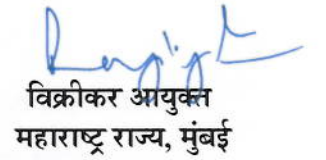 विक्रीकर आयुक्त
महाराष्ट्र राज्य, मुंबई